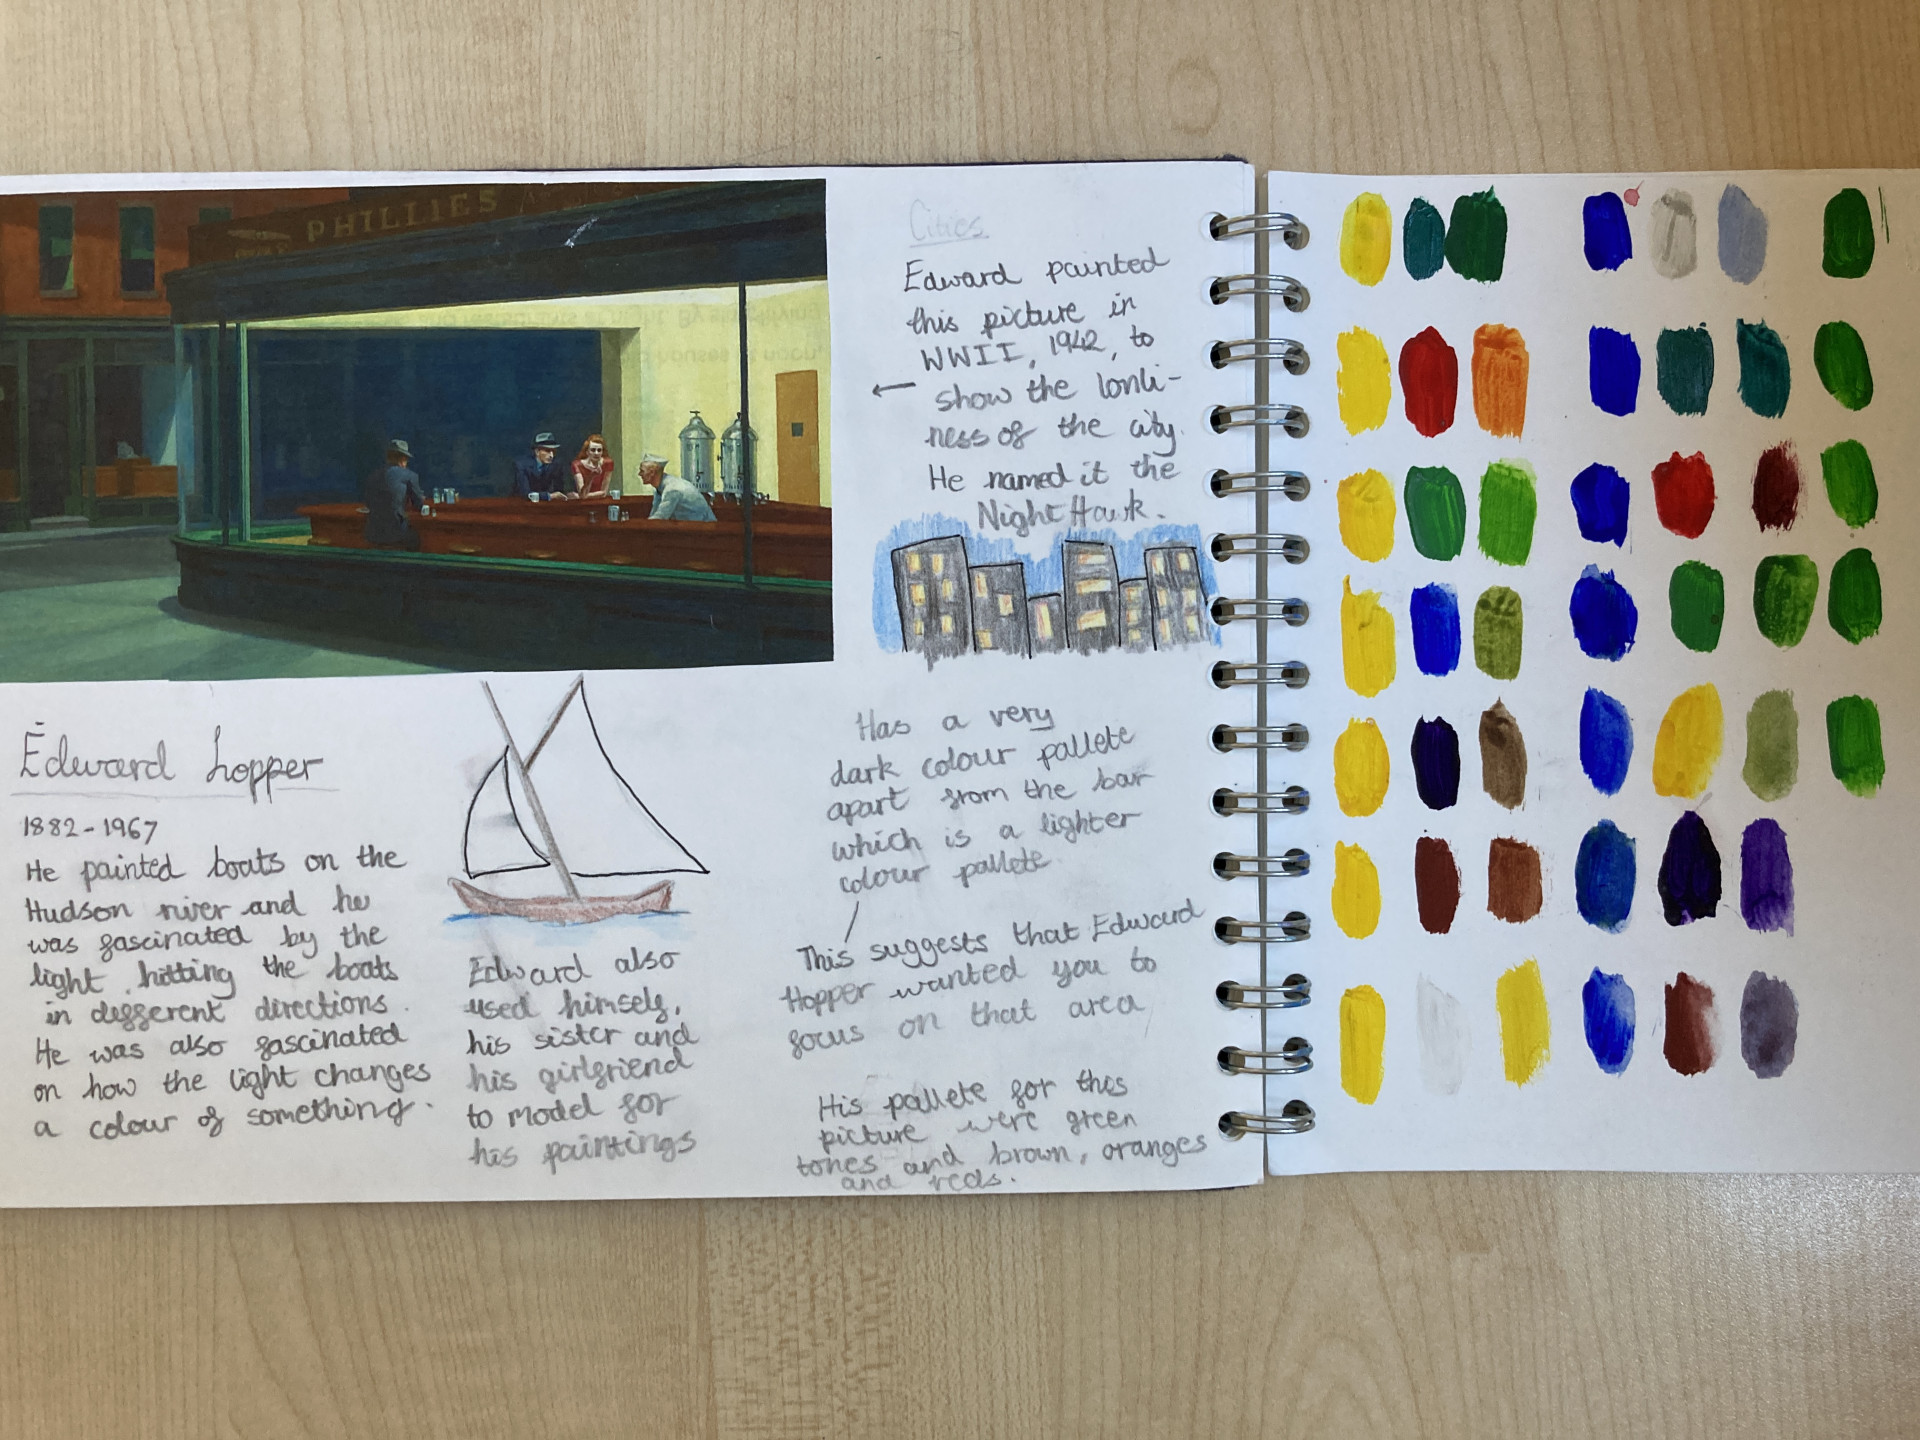 PHILLIES
Cities
Edward painted
this picture in
WWII, 1942, to
show the lonli-
ness of the city.
He named it the
Night Hawk.
Edward hopper
1882-1967
He painted boats on the
Hudson river and he
was fascinated by the
light hitting the boats
in different directions.
He was also fascinated
on how the light changes
a colour of something.
Edward also
used himself,
his sister and
his girlfriend
to model for
his paintings
Has a very
dark colour pallete
apart from the bar
which is a lighter
colour pallete
This suggests that Edward
Hopper wanted you to
focus on that area
His pallete for this
picture were green
tones and brown, oranges
and reds.